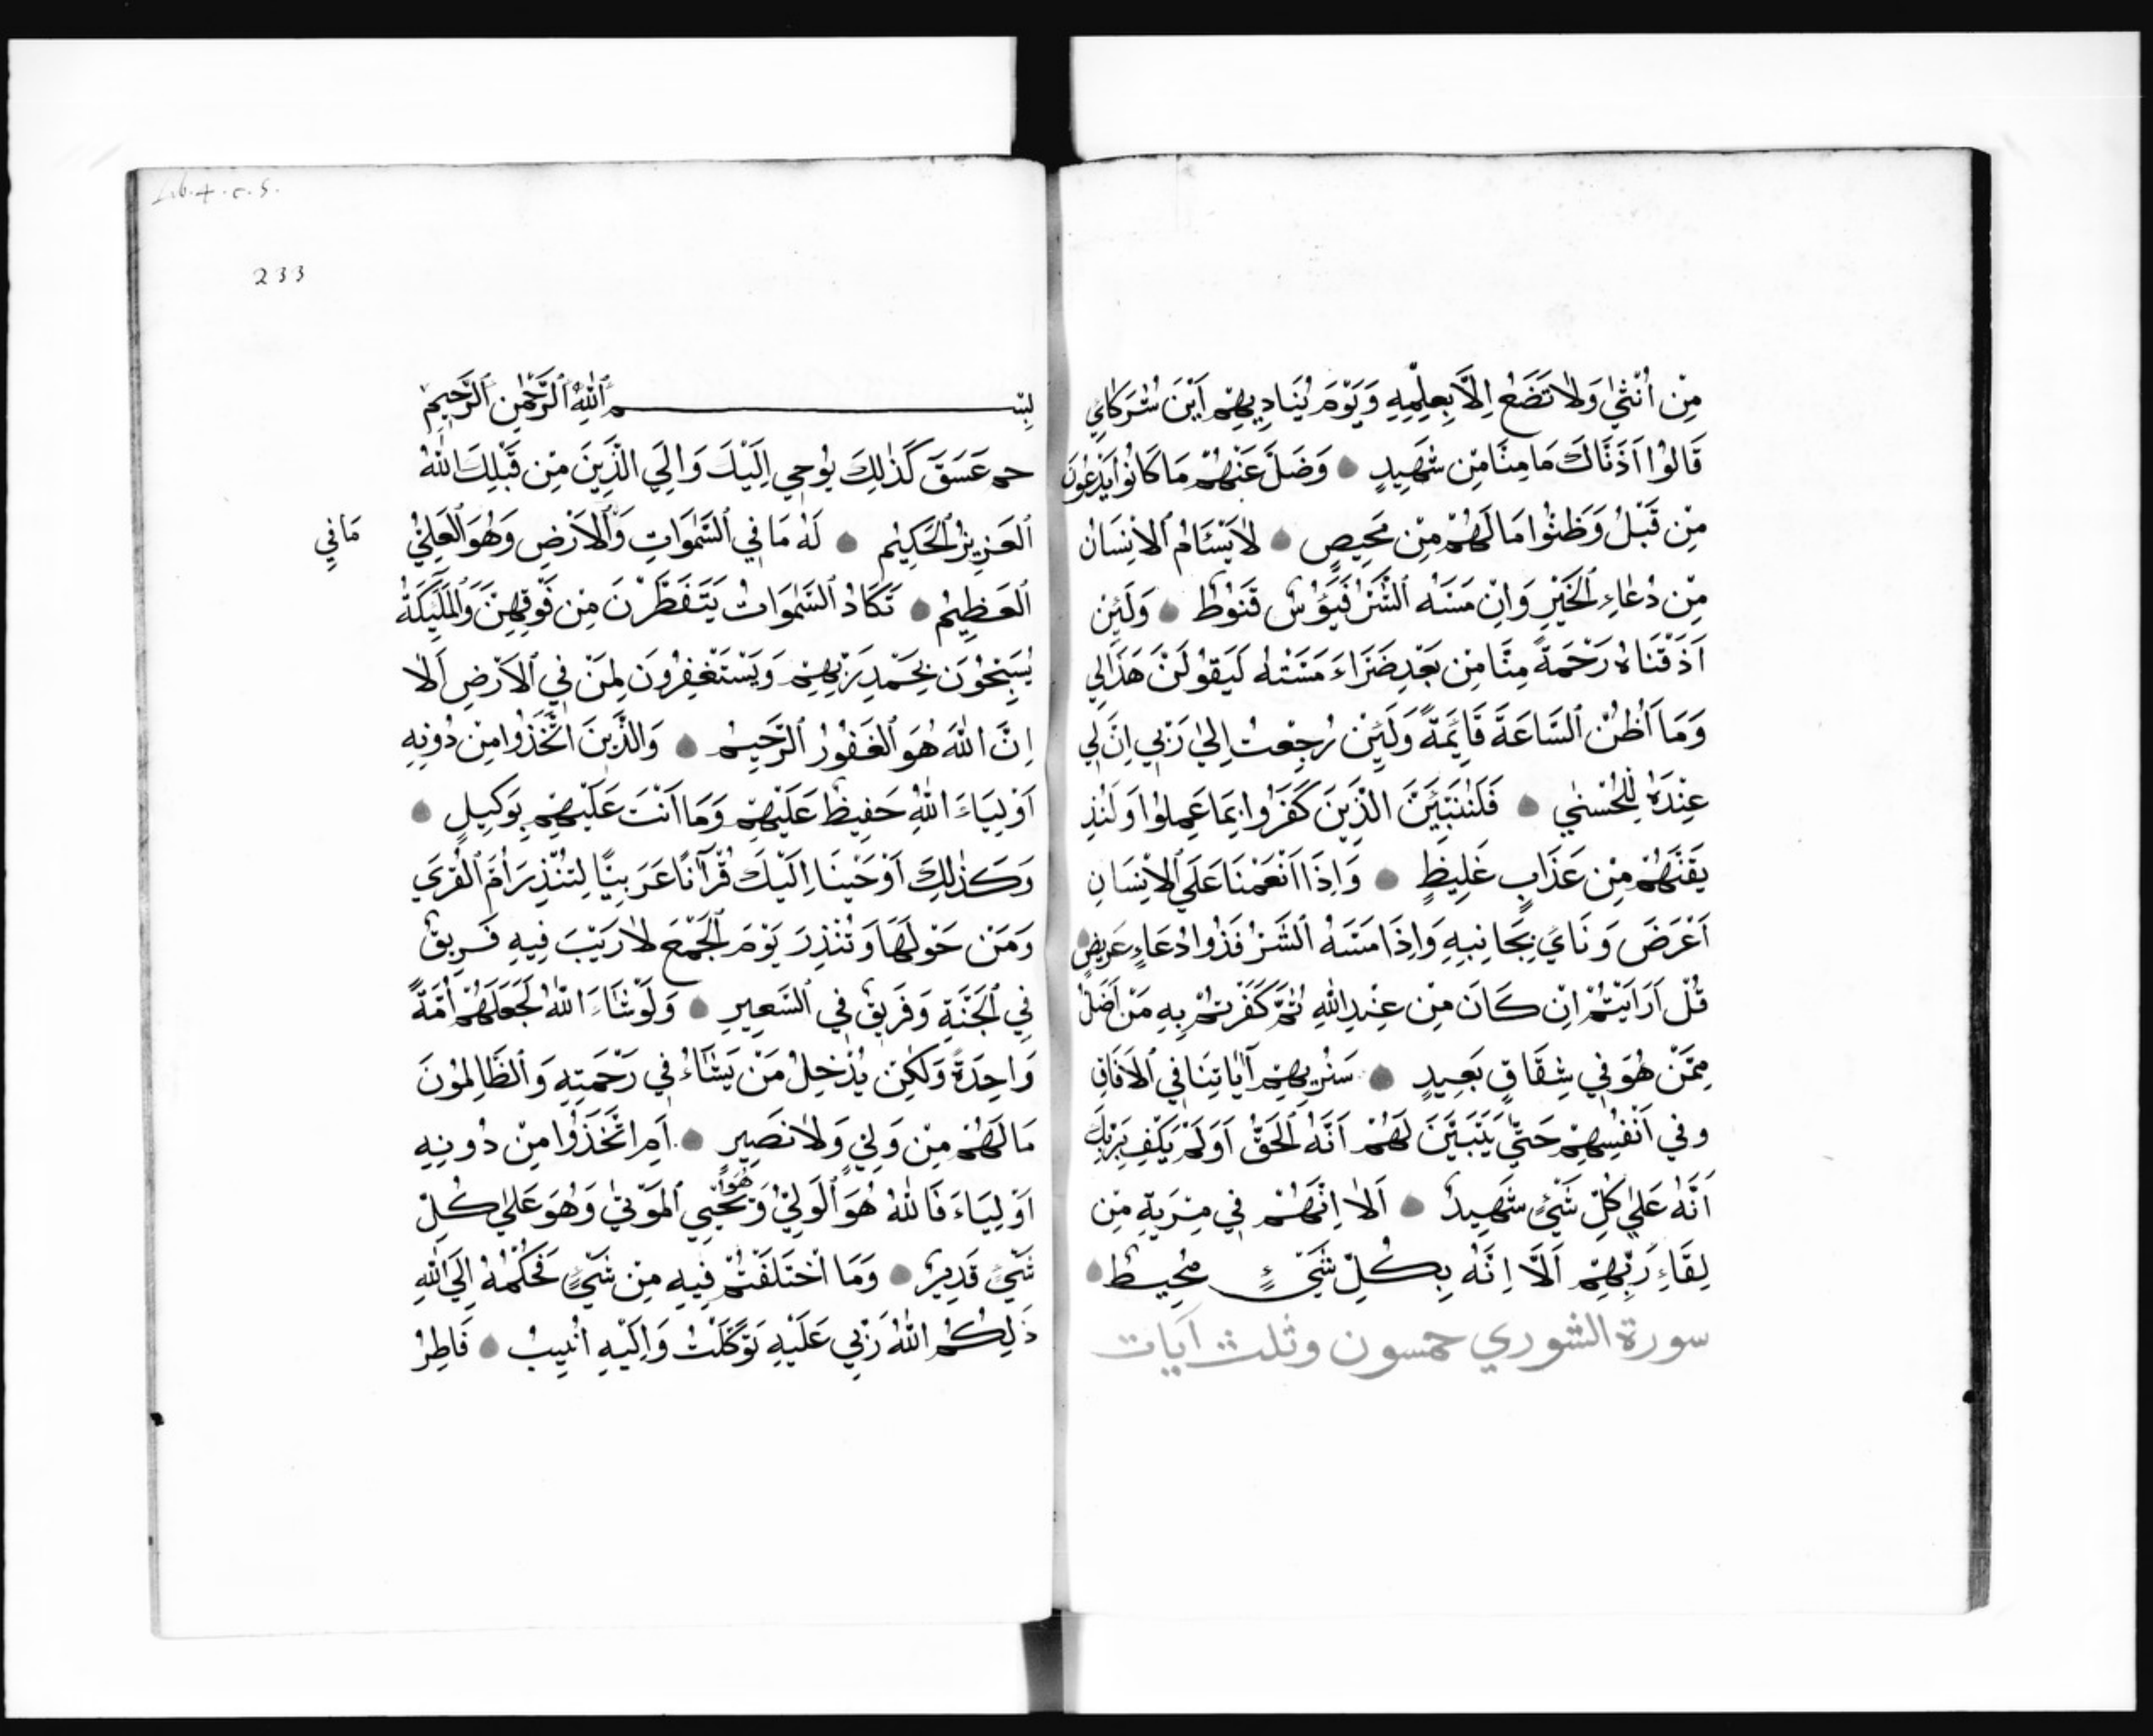 مِنْ اُنْثٰي وَلَا تَضَعُ اِلَّا بِعِلْمِهِ وَيَوْمَ يُنَادِيهِمْ اَيْنَ شُرَكَائِي
قَالُوا اَذَنَّاكَ مَا مِنَّا مِنْ شَهِيدٍ وَضَلَّ عَنْهُمْ مَا كَانُوا يَدْعُونَ
مِنْ قَبْلُ وَظَنُّوا مَا لَهُمْ مِنْ مَحِيصٍ لَا يَسْئَامُ الْاِنْسَانُ
مِنْ دُعَاءِ الْخَيْرِ وَاِنْ مَسَّهُ الشَّرُّ فَيَؤُسٌ قَنُوطٌ وَلَئِنْ
اَذَقْنَاهُ رَحْمَةً مِنَّا مِنْ بَعْدِ ضَرَّاءَ مَسَّتْهُ لَيَقُولَنَّ هَذَا لِي
وَمَا اَظُنُّ السَّاعَةَ قَائِمَةً وَلَئِنْ رُجِعْتُ اِلٰي رَبِّي اِنَّ لِي
عِنْدَهُ لَلْحُسْنٰي فَلَنُنَبِّئَنَّ الَّذِينَ كَفَرُوا بِمَا عَمِلُوا وَلَنُذِ
يقَنَّهُمْ مِنْ عَذَابٍ غَلِيظٍ وَاِذَا اَنْعَمْنَا عَلَي الْاِنْسَانِ
اَعْرَضَ وَنَاَيَ بِجَانِبِهِ وَاِذَا مَسَّهُ الشَّرُّ فَذُوا دُعَاءٍ عَرِيضٍ
قُلْ اَرَاَيْتُمْ اِنْ كَانَ مِنْ عِنْدِ اللّٰهِ ثُمَّ كَفَرْتُمْ بِهِ مَنْ اَضَلُّ
مِمَّنْ هُوَ فِي شِقَاقٍ بَعِيدٍ سَنُرِيهِمْ آيَاتِنَا فِي الْاَفَاقِ
وفي اَنْفُسِهِمْ حَتّٰي يَتَبَيَّنَ لَهُمْ اَنَّهُ الْحَقُّ اَوَلَمْ يَكْفِ بِرَبِّكَ
اَنَّهُ عَلٰي كُلِّ شَيْءٍ شَهِيدٌ اَلَا اِنَّهُمْ فِي مِرْيَةٍ مِنْ
لِقَاءِ رَبِّهِمْ اَلَا اِنَّهُ بِكُلِّ شَيْءٍ مُحِيطٌ
سورة الشوري خمسون وثلث آيات
Lib. 4. c. 5.
233
بِسْمِ اللّٰهِ الرَّحْمٰنِ الرَّحِيمِ
حم عسق كَذٰلِكَ يُوحِي اِلَيْكَ وَاِلَي الَّذِينَ مِنْ قَبْلِكَ اللّٰهُ
الْعَزِيزُ الْحَكِيمُ لَهُ مَا فِي السَّمٰوَاتِ وَالْاَرْضِ وَهُوَ الْعَلِيُّ
مَا فِي
الْعَظِيمُ تَكَادُ السَّمٰوَاتُ يَتَفَطَّرْنَ مِنْ فَوْقِهِنَّ وَالْمَلَئِكَةُ
يُسَبِّحُونَ بِحَمْدِ رَبِّهِمْ وَيَسْتَغْفِرُونَ لِمَنْ فِي الْاَرْضِ اَلَا
اِنَّ اللّٰهَ هُوَ الْغَفُورُ الرَّحِيمُ وَالَّذِينَ اتَّخَذُوا مِنْ دُونِهِ
اَوْلِيَاءَ اللّٰهُ حَفِيظٌ عَلَيْهِمْ وَمَا اَنْتَ عَلَيْهِمْ بِوَكِيلٍ
وَكَذٰلِكَ اَوْحَيْنَا اِلَيْكَ قُرْآنًا عَرَبِيًّا لِتُنْذِرَ اُمَّ الْقُرَي
وَمَنْ حَوْلَهَا وَتُنْذِرَ يَوْمَ الْجَمْعِ لَا رَيْبَ فِيهِ فَرِيقٌ
فِي الْجَنَّةِ وَفَرِيقٌ فِي السَّعِيرِ وَلَوْ شَاءَ اللّٰهُ لَجَعَلَهُمْ اُمَّةً
وَاحِدَةً وَلٰكِنْ يُدْخِلُ مَنْ يَشَاءُ فِي رَحْمَتِهِ وَالظَّالِمُونَ
مَا لَهُمْ مِنْ وَلِيٍّ وَلَا نَصِيرٍ اَمِ اتَّخَذُوا مِنْ دُونِهِ
اَوْلِيَاءَ فَاللّٰهُ هُوَ الْوَلِيُّ وَهُوَ يُحْيِي الْمَوْتٰي وَهُوَ عَلٰي كُلِّ
شَيْءٍ قَدِيرٌ وَمَا اخْتَلَفْتُمْ فِيهِ مِنْ شَيْءٍ فَحُكْمُهُ اِلَي اللّٰهِ
ذَلِكُمُ اللّٰهُ رَبِّي عَلَيْهِ تَوَكَّلْتُ وَاِلَيْهِ اُنِيبُ فَاطِرُ